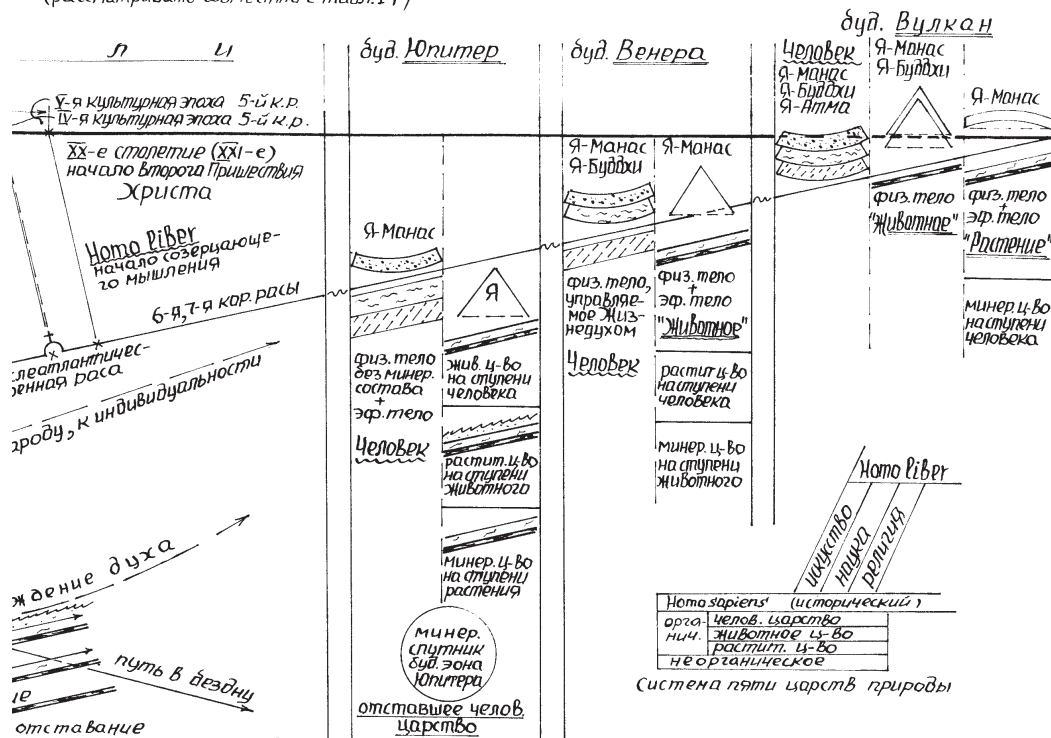 (рассматривать совместно с табл.
л и
V-я культурная эпоха 5-й к.р.
IV-я культурная эпоха 5-й к.р.
XX-е столетие (XXI-е)
начало Второго Пришествия
Христа
Homo liber
начало созерцающе-
го мышления
6-я, 7-я кор. расы
слеатлантичес-
енная раса
ароду, к индивидуальности
ждение духа
путь в бездну
ие
отставание
буд. Юпитер
Я-Манас
физ. тело
без минер.
состава
+
эф. тело
Человек
Я
жив. ц-во
на ступени
человека
растит. ц-во
на ступени
животного
минер. ц-во
на ступени
растения
минер.
спутник
буд. эона
Юпитера
отставшее челов.
царство
буд. Венера
Я-Манас
Я-Буддхи
физ. тело,
управляе-
мое Жиз-
недухом
Человек
Я-Манас
физ. тело
+
эф. тело
"Животное"
растит ц-во
на ступени
человека
минер. ц-во
на ступени
животного
буд. Вулкан
Человек
Я-Манас
Я-Буддхи
Я-Атма
Я-Манас
Я-Буддхи
физ. тело
"Животное"
Я-Манас
физ. тело
+
эф. тело
"Растение"
минер. ц-во
на ступени
человека
Homo liber
искусство
наука
религия
Homo sapiens (исторический)
орга-
нич.
челов. царство
животное ц-во
растит. ц-во
неорганическое
Система пяти царств природы